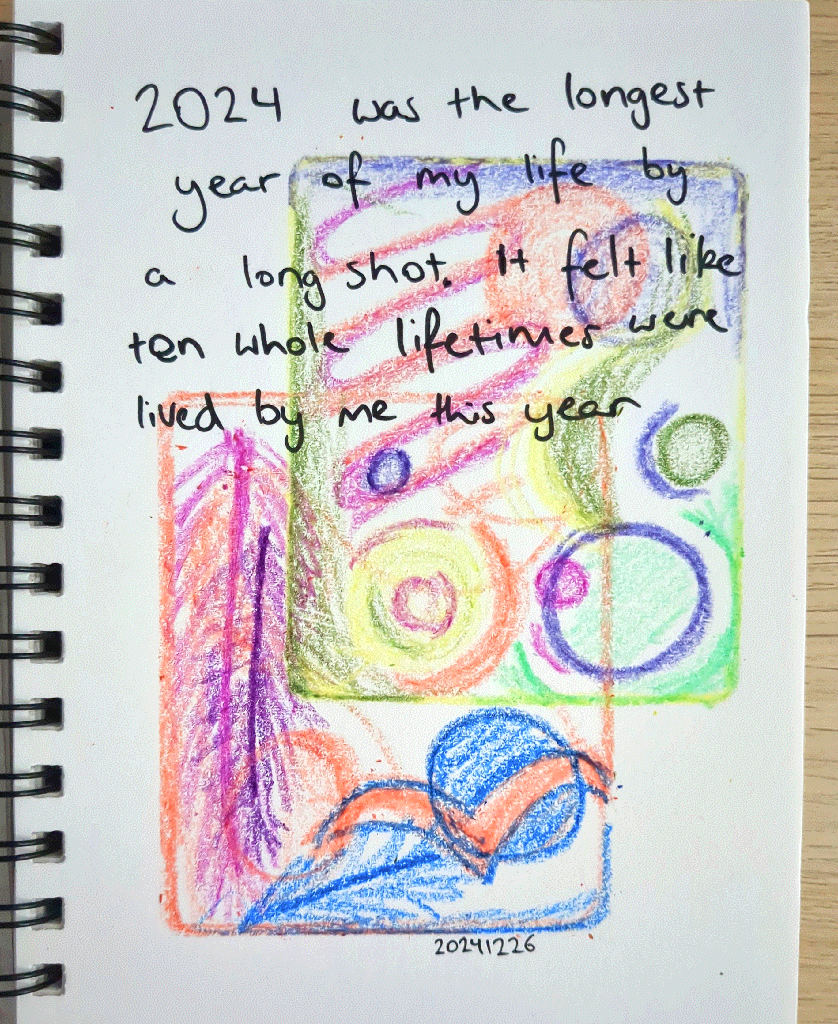 2024 was the longest
year of my life by
a long shot. It felt like
ten whole lifetimes were
lived by me this year
20241226